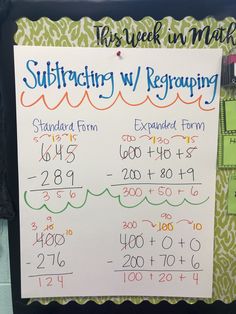 This Week in Math
Subtracting w/ Regrouping
Standard Form
Expanded Form
5 13 15
500 130 15
645
600 + 40 + 5
- 289
- 200 + 80 + 9
356
300 + 50 + 6
90
3 9 10
300 100 10
400
400 + 0 + 0
- 276
- 200 + 70 + 6
124
100 + 20 + 4